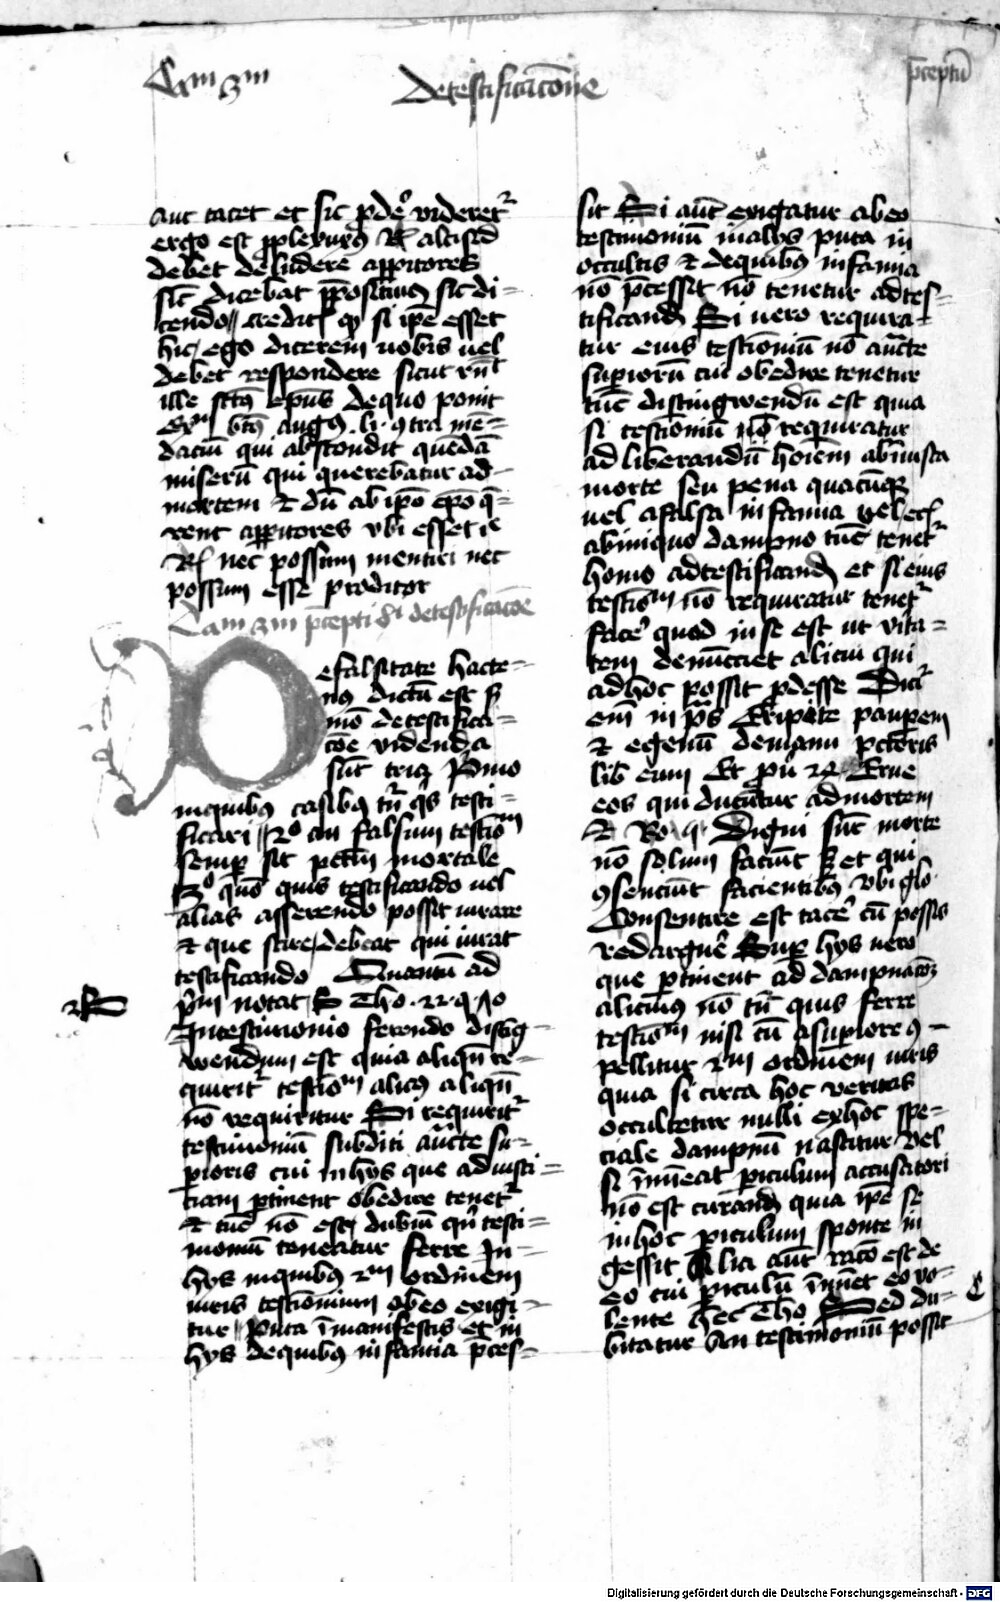 Cam 3m
De testificac̄one
p̄ceptū
aut tacet et sic pdeꝰ videretᷣ
ergo est ꝑplexus R̄ altisid
debet deludere appitores
sic̄ dicebat p̄positiuꝰ sic di-
cendo credit̄ ꝙ si ip̄e esset
hic ego dicerem uobis uel
debet respondere sicut rn̄t
ille sctꝰ ep̄us de quo ponit
Ex̄m btūs augꝰ li. ꝯtra mē-
daciū qui abscondit quēdā
miserū qui querebatur ad
mortem et dū ab ip̄o ep̄o q̄-
rent appitores vbi esset ic̄
R̄ nec possum mentiri nec
possum esse proditor
Cam 3m p̄cepti 8i de testificac̄oe
De falsitate hacte-
nꝰ dictū est ꝫ
mō de testifica-
c̄oe videnda
sūt tria Primo
in quibꝫ casibꝫ tn̄ q̄s testi-
ficari 2o an falsum testiom
semꝑ sit pctm̄ mortale
3o quō quis testificando uel
alias asserendo possit iurare
et que scire debeat qui iurat
testificando Quantū ad
p̄m notat S Tho. 22. q. 70
In testimonio ferendo disting-
wendum est quia aliqn̄ re-
quiritᷣ testiom alicꝰ aliqn̄
nō requiritur Si requiritᷣ
testimoniū subditi auc̄te su-
ꝑioris cui in hys que ad iusti-
ciam ꝑtinent obedire tenetᷣ
et tūc nō est dubiū qn̄ testi-
moniū teneatur ferre In
hys in quibꝫ 2m ordinem
iuris testimonium ab eo exigi-
tur puta ī manifestis et in
hys de quibꝫ infamia p̄ces-
sit Si aūt exigatur ab eo
testimoniū in alys puta in
occultis et de quibꝫ infamia
nō p̄cessit nō tenetur ad tes-
tificandū Si uero requira-
tur eius testioniū nō auc̄te
suꝑiorū cui obedire tenetur
tūc distingwendū est quia
si testioniū nō requiratur
ad liberandū hoīem ab iniusta
morte seu pena quacūqꝫ
uel a falsa infamia uel ec̄
ab iniquo dampno tūc tenetᷣ
homo ad testificandū et si eius
testiom nō requiratur tenetᷣ
faceꝰ quod in se est ut vita-
tem denūcciet alicui qui
ad hoc possit pdesse Dicitᷣ
em̄ in pȳs Eripite pauꝑem
et egenū de manu pctōris
lib eum Et pū 24 Erue
eos qui ducūtur ad mortem
et Ro. ij. Digni sūt morte
nō solum faciūt sꝫ et qui
ꝯsenciūt facientibꝫ vbi glo.
Consentire est taceꝰ cū possis
redargueꝰ Suꝑ hys uero
que ꝑtinent ad dampnac̄oꝫ
alicuiꝰ nō tn̄ quis ferre
testiom nisi cū a suꝑiore ꝯ-
pellitur 2m ordinem iuris
quia si circa hoc veritas
occultetur nulli ex hoc spe-
ciale dampnū nascitur Vel
si īmineat ꝑiculum accusatori
nō est curandū quia ip̄e se
in hoc ꝑiculum sponte in
gessit Alia aūt rac̄o est de
eo cui ꝑiculū īminet eo no-
lente Hec Tho Sed du-
bitatur an testimoniū possit